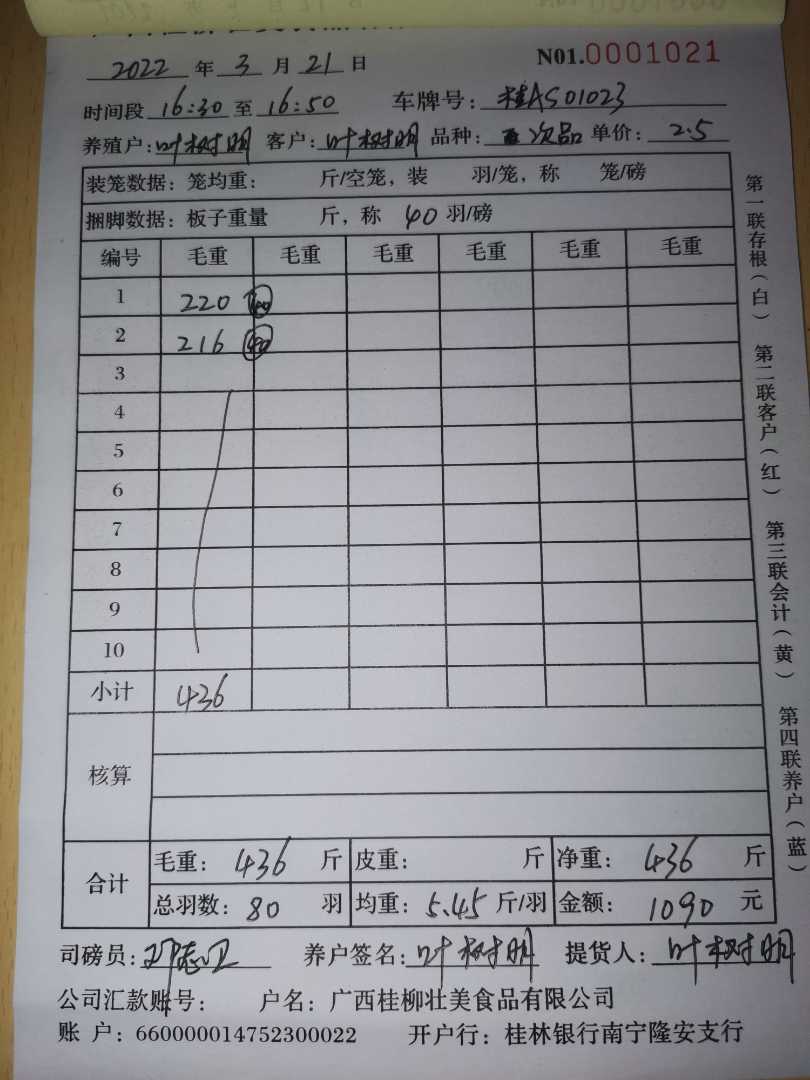 2022 年 3 月 21 日 N01.0001021
时间段 16:30 至 16:50 车牌号: 桂AS01023
养殖户: 叶树明 客户: 叶树明 品种: 次品 单价: 2.5
装笼数据: 笼均重: 斤/空笼, 装 羽/笼, 称 笼/磅
捆脚数据: 板子重量 斤, 称 40 羽/磅
编号 毛重 毛重 毛重 毛重 毛重 毛重
1 220 40
2 216 40
3
4
5
6
7
8
9
10
小计 436
核算
合计 毛重: 436 斤 皮重: 斤 净重: 436 斤
总羽数: 80 羽 均重: 5.45 斤/羽 金额: 1090 元
司磅员: 养户签名: 叶树明 提货人: 叶树明
公司汇款账号: 户名: 广西桂柳壮美食品有限公司
账 户: 660000014752300022 开户行: 桂林银行南宁隆安支行
第一联存根(白) 第二联客户(红) 第三联会计(黄) 第四联养户(蓝)